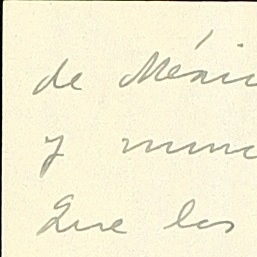 de Méxic
y nunc
Que los